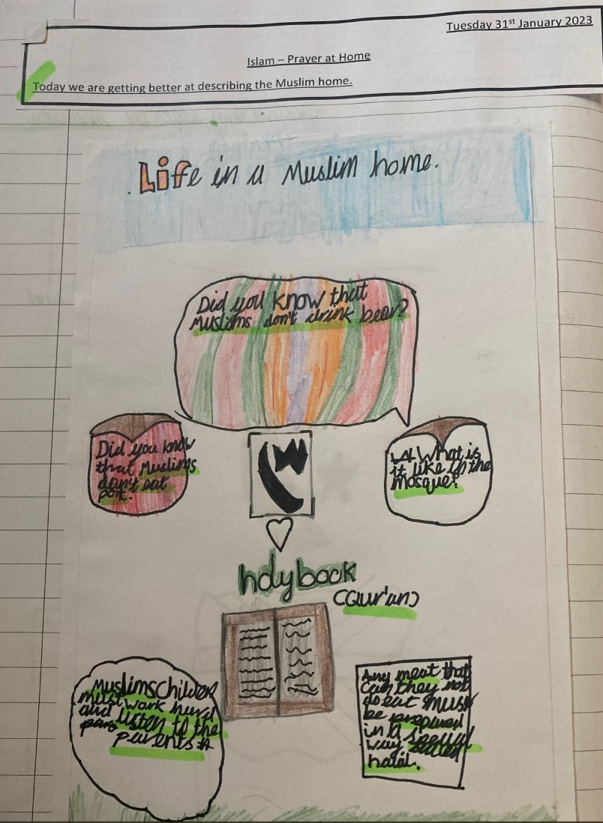 Tuesday 31st January 2023
Islam – Prayer at Home
Today we are getting better at describing the Muslim home.
Life in a Muslim home.
Did you know that
Muslims don't drink beer?
Did you know
that Muslims
don't eat
What is
it like in the
mosque?
holy book
(Qur'an)
Muslims
must work hard
and listen to the
parents
Any meat that
they
do eat must
be prepared
in a special
way
halal.